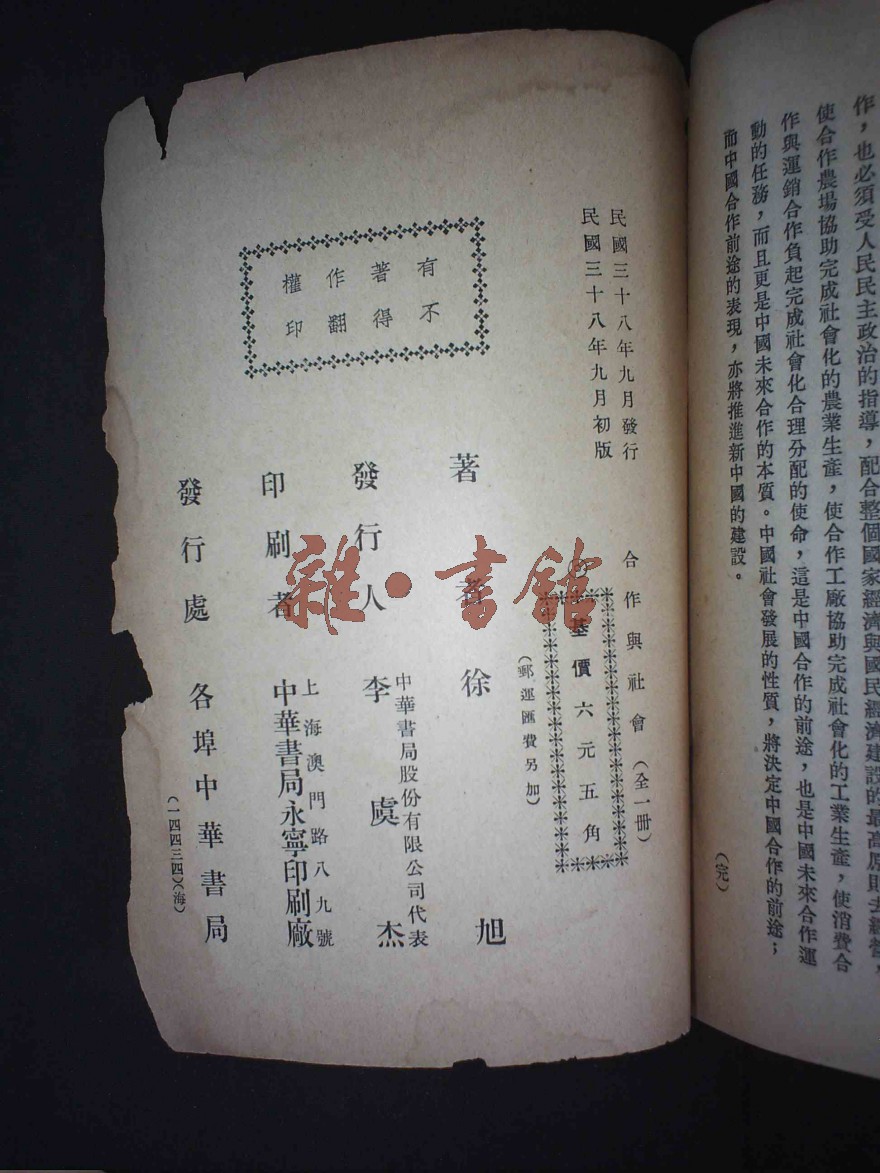 作，也必須受人民民主政治的指導，配合整個國家經濟與國民經濟建設的最高原則去經營，
使合作農場協助完成社會化的農業生產，使合作工廠協助完成社會化的工業生產，使消費合
作與運銷合作負起完成社會化合理分配的使命，這是中國合作的前途，也是中國未來合作運
動的任務，而且更是中國未來合作的本質。中國社會發展的性質，將決定中國合作的前途；
而中國合作前途的表現，亦將推進新中國的建設。
（完）
民國三十八年九月發行
民國三十八年九月初版
合作與社會（全一冊）
基價六元五角
（郵運匯費另加）
有不
著得
作翻
權印
著者 徐旭
中華書局股份有限公司代表
發行人 李虞杰
上海澳門路八九號
印刷者 中華書局永寧印刷廠
發行處 各埠中華書局
（一四四三四）（海）
雜·書館